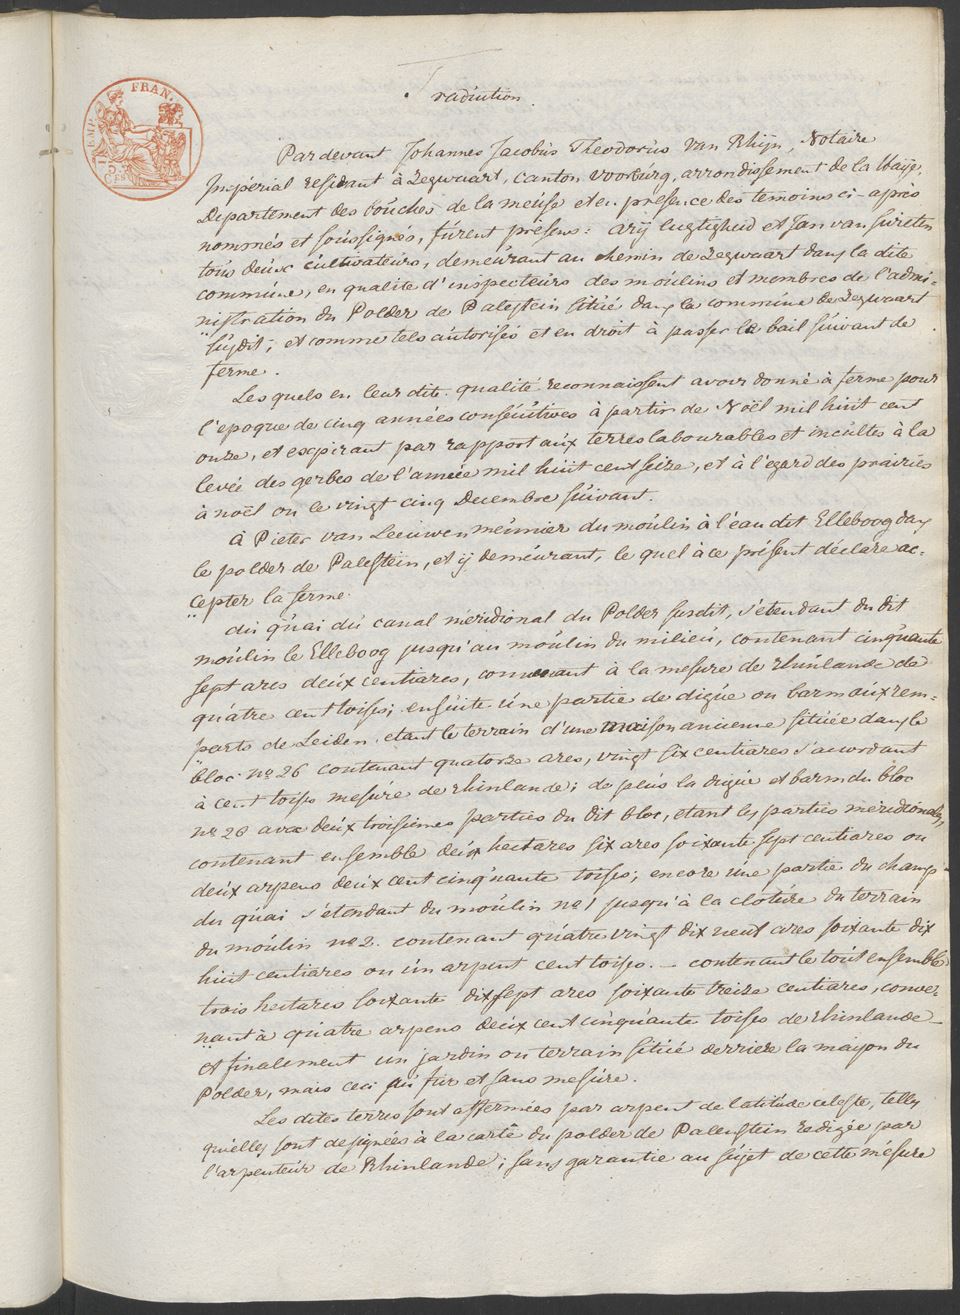 Traduction.
EMP. FRAN.
Pardevant Johannes Jacobus Theodorus van Rhijn, Notaire
Impérial residant à Zegwaart, Canton Voorburg, arrondissement de la Haije,
Departement des bouches de la meuse et en presence des temoins ci-après
nommés et soussignés, furent présens: Arij Lugtigheid et Jan van Surksten
tous deux cultivateurs, demeurant au chemin de Zegwaart dans la dite
commune, en qualité d'inspecteurs des moulins et membres de l'admi-
"nistration du Polder de Palestein situé dans la commune de Zegwaart
susdit; et comme tels autorisés et en droit à passer le bail suivant de
ferme.
Les quels en leur dite qualité reconnaissent avoir donné à ferme pour
l'epoque de cinq années consécutives à partir de Noël mil huit cent
onze, et expirant par rapport aux terres labourables et incultes à la
levée des gerbes de l'année mil huit cent seize, et à l'egard des prairies
à noël ou le vingt cinq Decembre suivant.
à Pieter van Leeuwen meunier du moulin à l'eau dit Elleboog dans
le polder de Palestein, et ij demeurant, le quel à ce présent déclare ac-
"cepter la ferme.
du quai du canal méridional du Polder susdit, s'etendant du dit
moulin le Elleboog jusqu'au moulin du milieu, contenant cinquante
sept ares deux centiares, convenant à la mesure de Rhinlande de
quatre cent toises; ensuite une partie de digue ou barm aux rem-
"parts de Leiden etant le terrain d'une maison ancienne située dans le
bloc no 26 contenant quatorze ares, vingt six centiares s'acordant
à cent toises mesure de Rhinlande; de plus la digue et barm du bloc
no 26 avec deux troisièmes parties du dit bloc, etant les parties meridionales,
contenant ensemble deux hectares six ares soixante sept centiares ou
deux arpens deux cent cinquante toises; encore une partie du champ
du quai s'étendant du moulin no 1 jusqu'à la cloture du terrain
du moulin no 2. contenant quatre vingt dix neuf ares soixante dix
huit centiares ou un arpent cent toises. - contenant le tout ensemble
trois hectares soixante dix sept ares soixante treize centiares, conve-
"nant à quatre arpens deux cent cinquante toises de Rhinlande -
et finalement un jardin ou terrain situé derriere la maison du
Polder, mais ceci au fur et sans mesure.
Les dites terres sont affermées par arpent de latitude celeste, telles
qu'elles sont designées à la carte du polder de Palenstein redigée par
l'arpenteur de Rhinlande; sans garantie au sujet de cette mésure